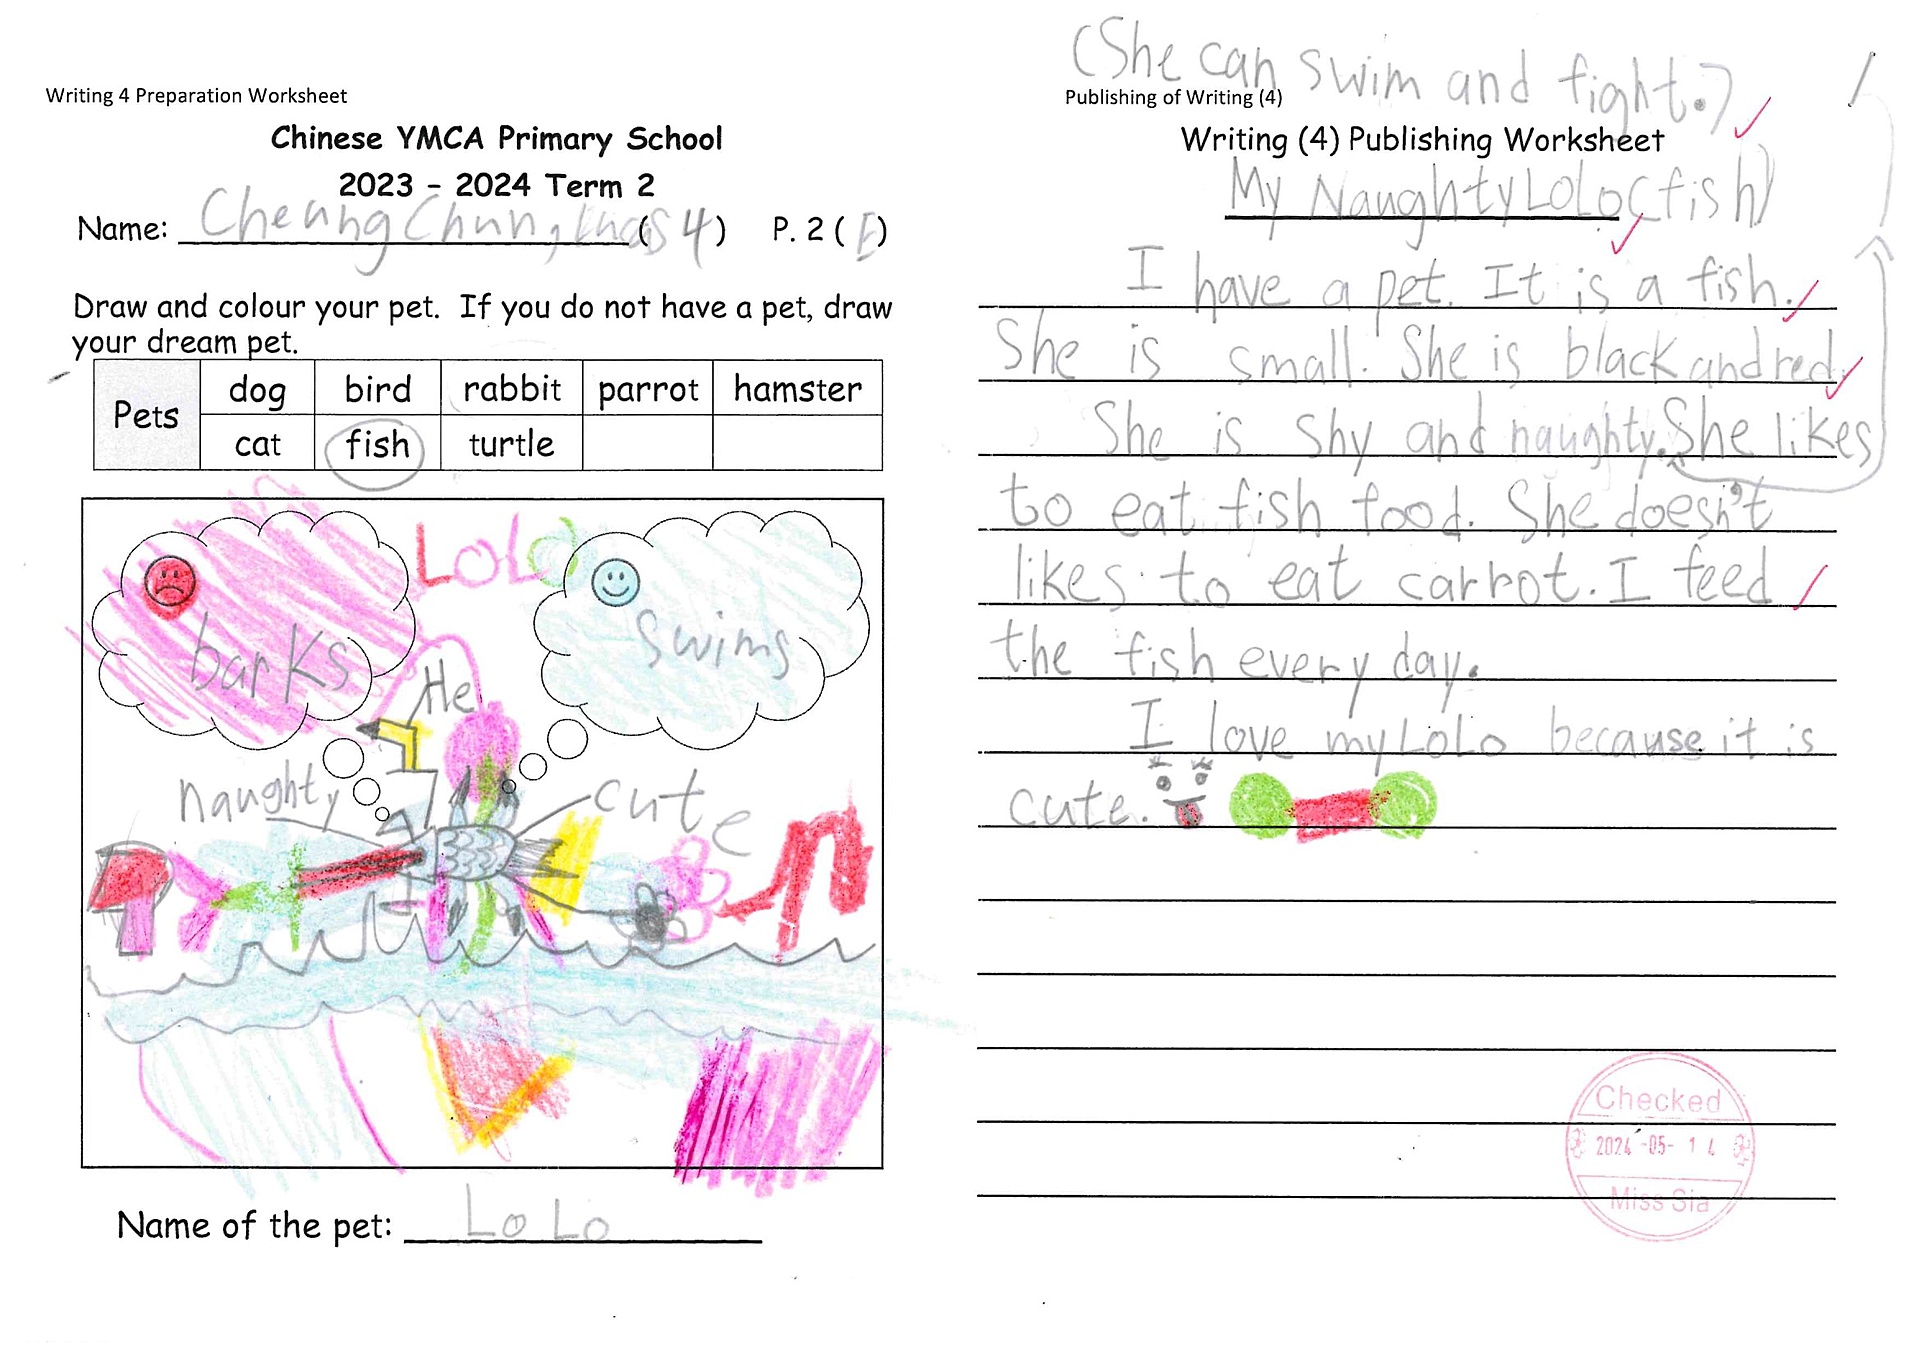 Writing 4 Preparation Worksheet
Chinese YMCA Primary School
2023 - 2024 Term 2
Name: Cheung Chun, Lucas ( 4 ) P. 2 ( E )
Draw and colour your pet. If you do not have a pet, draw
your dream pet.
Pets dog bird rabbit parrot hamster
cat fish turtle
LOLO
barks
swims
He
naughty
cute
Name of the pet: LoLo
(She can swim and fight.)
Publishing of Writing (4)
Writing (4) Publishing Worksheet
My Naughty LoLo (fish)
I have a pet. It is a fish.
She is small. She is black and red.
She is shy and naughty. She likes
to eat fish food. She doesn't
likes to eat carrot. I feed
the fish every day.
I love my LoLo because it is
cute.
Checked
2024-05-14
Miss Sia